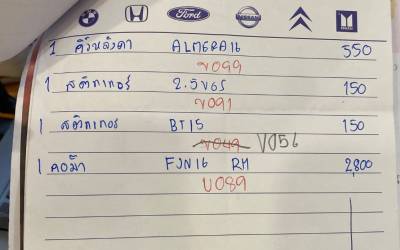 Ford NISSAN ISUZU
1 คิ้วหลังคา ALMERA16 550
V099
1 สติกเกอร์ 2.5VGS 150
V091
1 สติกเกอร์ BT15 150
V049 V056
1 คอม้า FJN16 RH 2,800
V089